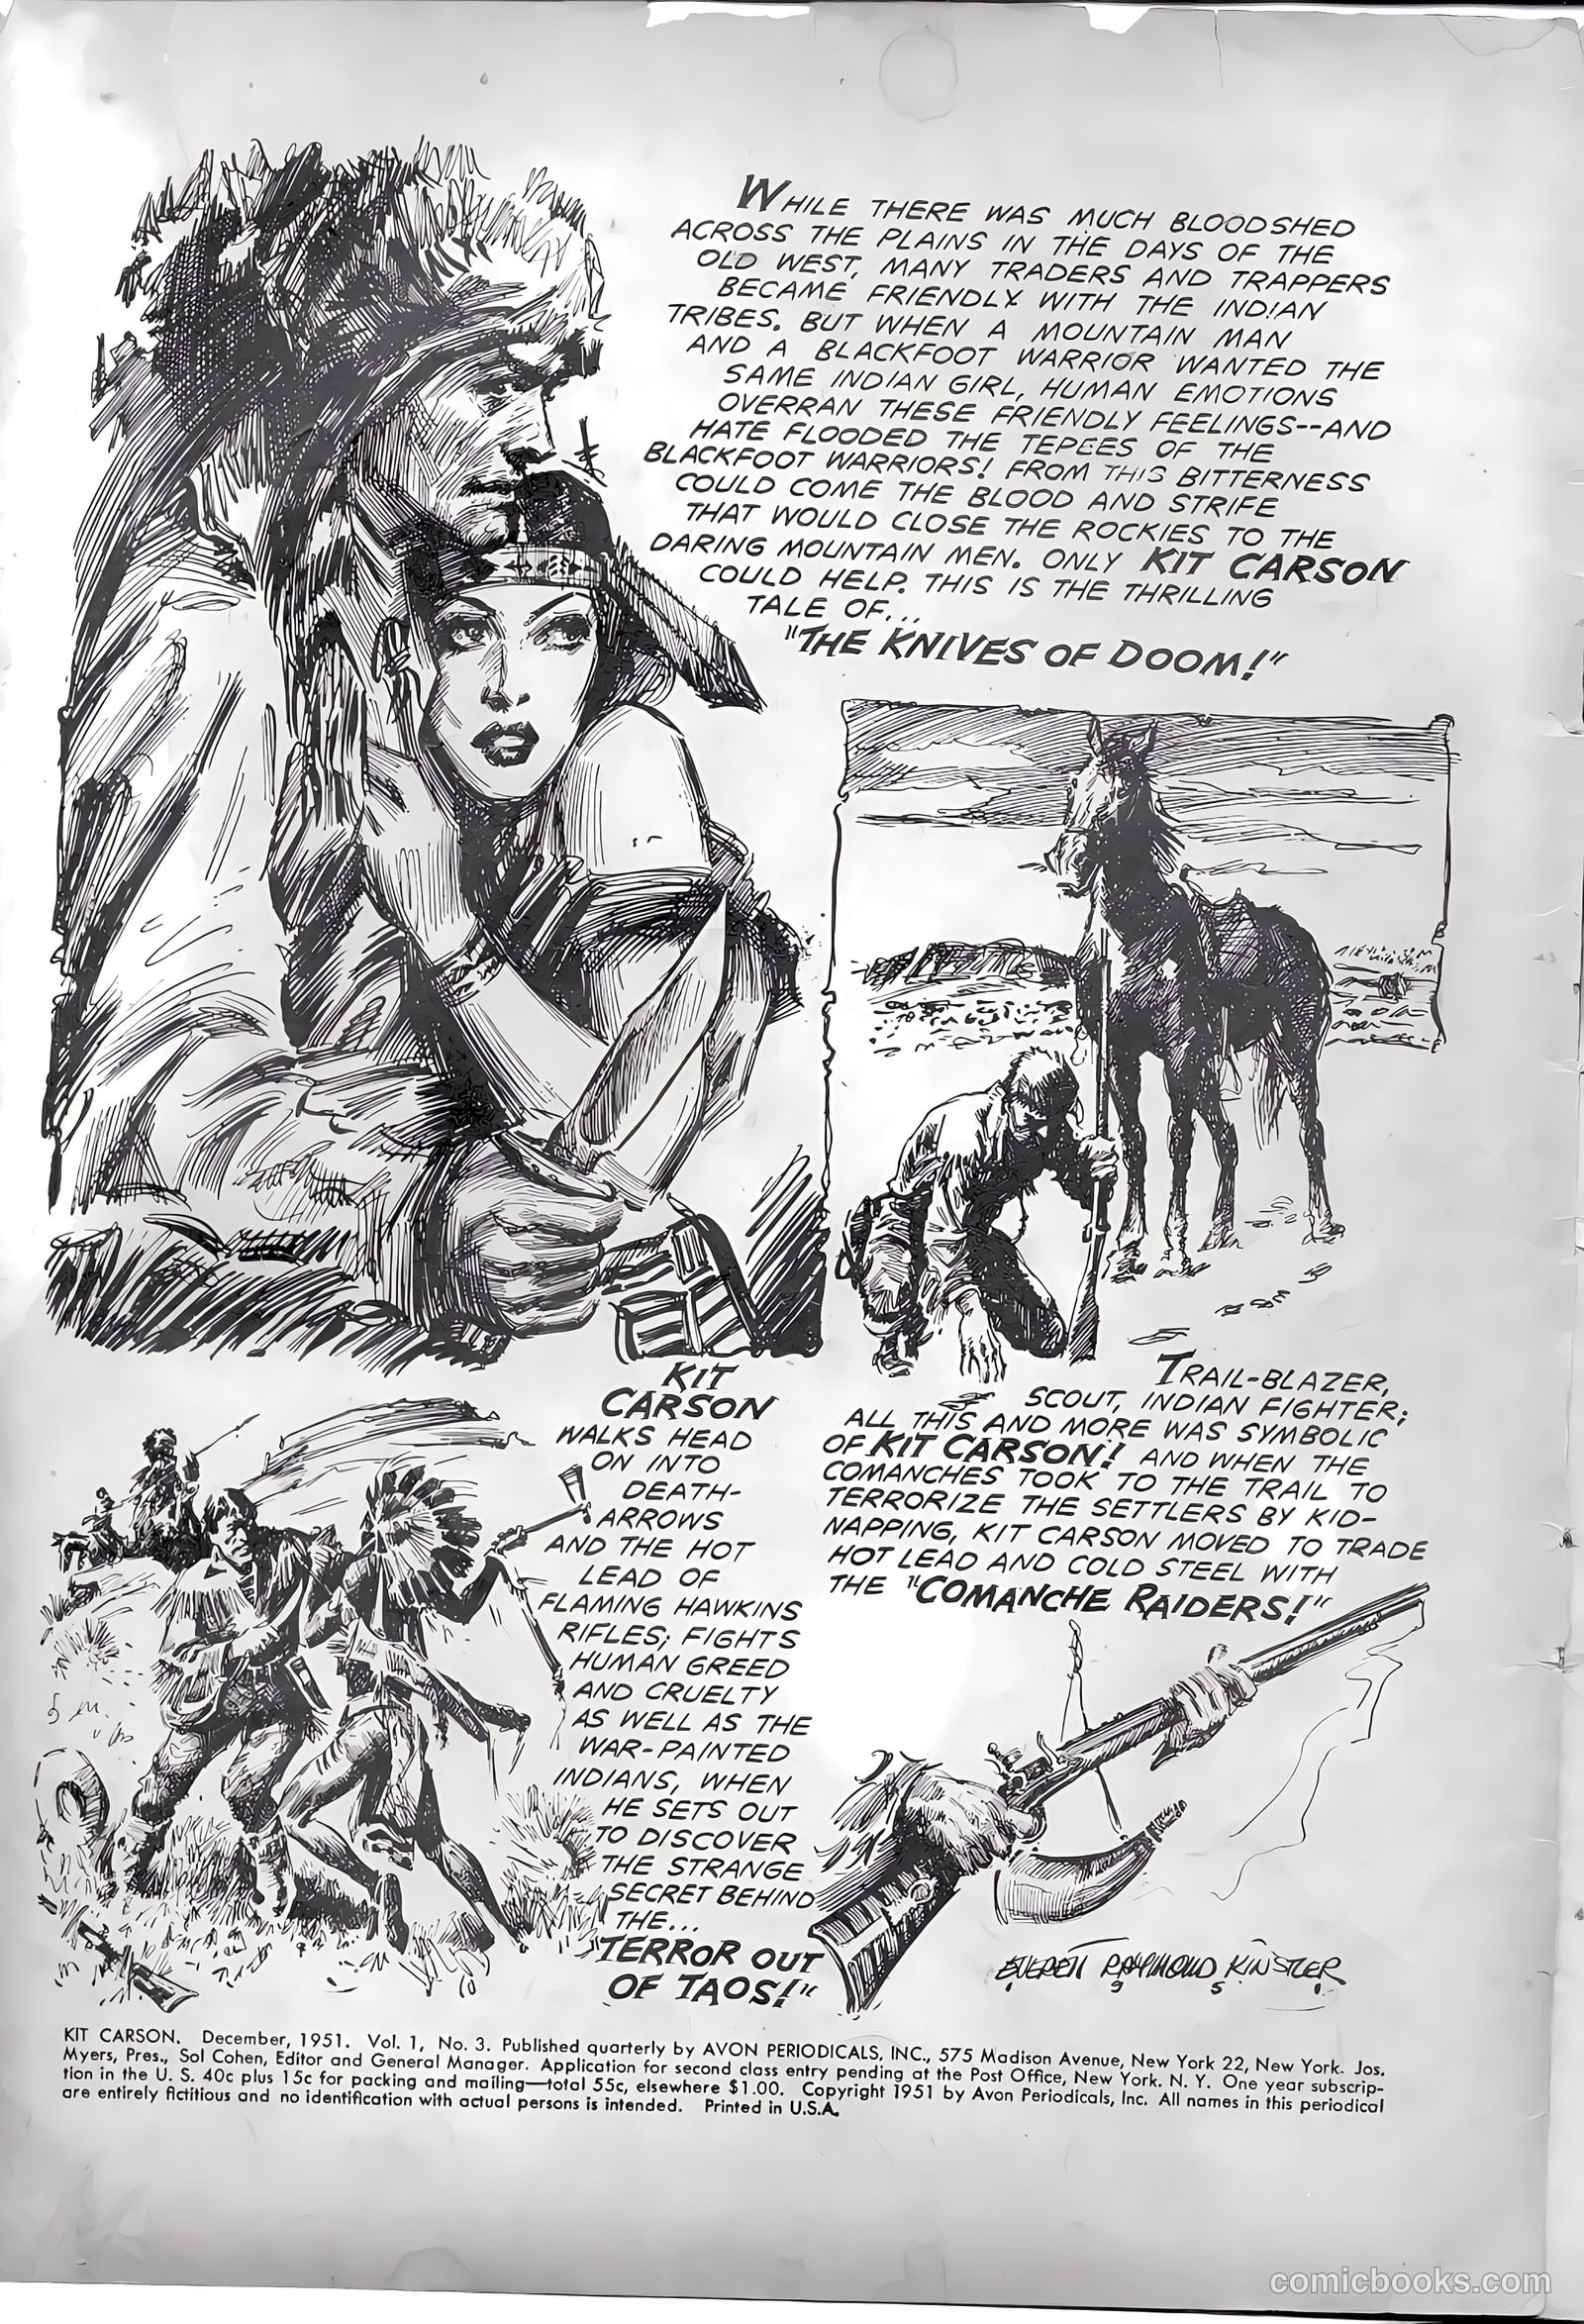 WHILE THERE WAS MUCH BLOODSHED
ACROSS THE PLAINS IN THE DAYS OF THE
OLD WEST, MANY TRADERS AND TRAPPERS
BECAME FRIENDLY WITH THE INDIAN
TRIBES. BUT WHEN A MOUNTAIN MAN
AND A BLACKFOOT WARRIOR WANTED THE
SAME INDIAN GIRL, HUMAN EMOTIONS
OVERRAN THESE FRIENDLY FEELINGS--AND
HATE FLOODED THE TEPEES OF THE
BLACKFOOT WARRIORS! FROM THIS BITTERNESS
COULD COME THE BLOOD AND STRIFE
THAT WOULD CLOSE THE ROCKIES TO THE
DARING MOUNTAIN MEN. ONLY KIT CARSON
COULD HELP. THIS IS THE THRILLING
TALE OF...
"THE KNIVES OF DOOM!"
KIT
CARSON
WALKS HEAD
ON INTO
DEATH-
ARROWS
AND THE HOT
LEAD OF
FLAMING HAWKINS
RIFLES; FIGHTS
HUMAN GREED
AND CRUELTY
AS WELL AS THE
WAR-PAINTED
INDIANS, WHEN
HE SETS OUT
TO DISCOVER
THE STRANGE
SECRET BEHIND
THE...
"TERROR OUT
OF TAOS!"
TRAIL-BLAZER,
SCOUT, INDIAN FIGHTER;
ALL THIS AND MORE WAS SYMBOLIC
OF KIT CARSON! AND WHEN THE
COMANCHES TOOK TO THE TRAIL TO
TERRORIZE THE SETTLERS BY KID-
NAPPING, KIT CARSON MOVED TO TRADE
HOT LEAD AND COLD STEEL WITH
THE "COMANCHE RAIDERS!"
EVERETT RAYMOND KINSTLER
KIT CARSON. December, 1951. Vol. 1, No. 3. Published quarterly by AVON PERIODICALS, INC., 575 Madison Avenue, New York 22, New York. Jos.
Myers, Pres., Sol Cohen, Editor and General Manager. Application for second class entry pending at the Post Office, New York. N. Y. One year subscrip-
tion in the U. S. 40c plus 15c for packing and mailing—total 55c, elsewhere $1.00. Copyright 1951 by Avon Periodicals, Inc. All names in this periodical
are entirely fictitious and no identification with actual persons is intended. Printed in U.S.A.
comicbooks.com